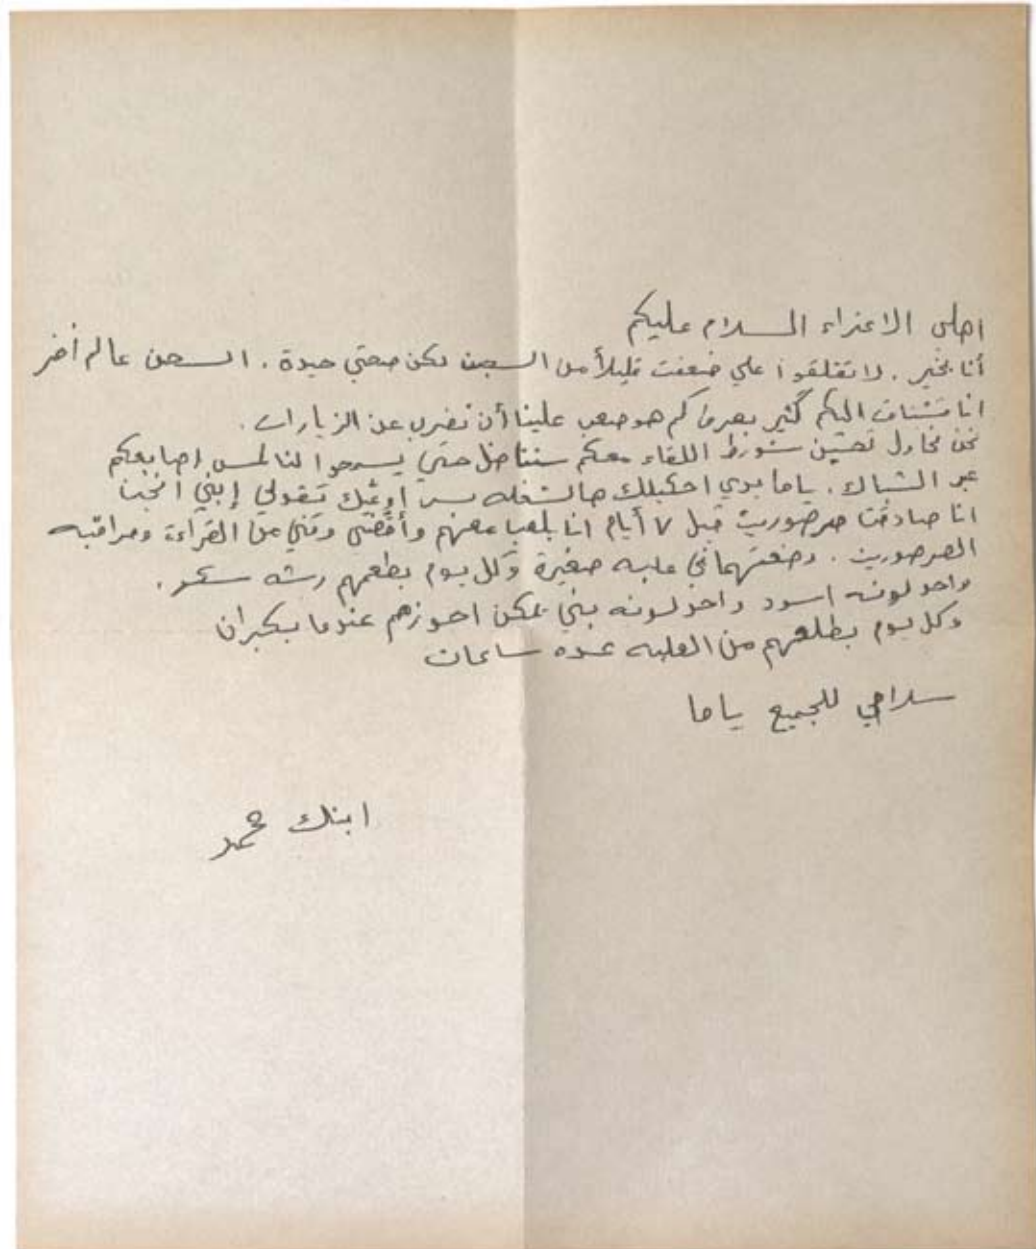 اهلي الاعزاء السلام عليكم
أنا بخير . لا تقلقوا علي ضعفت قليلاً من السجن لكن صحتي جيدة . السجن عالم أخر
انا مشتاق الكم كثير بعرف كم هو صعب علينا أن نضرب عن الزيارات .
نحن نحاول تحسين شورط اللقاء معكم سنناضل حتى يسمحوا لنا لمس اصابعكم
عبر الشباك . ياما بدي احكيلك هالشغله بس اوعك تقولي إبني انجن
انا صادقت صرصورين قبل ٧ أيام انا بلعب معهم وأقضي وقتي من القراءة ومراقبه
الصرصورين . وضعتهما في علبه صغيرة وكل يوم بطعمهم رشه سكر .
واحد لونه اسود واخد لونه بني يمكن اجوزهم عندما يكبران
وكل يوم بطلعهم من العلبه عده ساعات
سلامي للجميع ياما
ابنك محمد